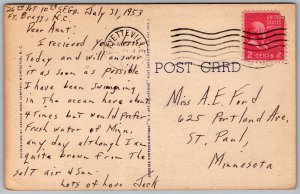 July 31, 1953
Ft. Bragg, N.C.
Dear Aunt:
I recieved your letter
today and will answer
it as soon as possible
I have been swimming
in the ocean here about
4 times but would prefer
Fresh water of Minn.
any day although I am
quite brown from the
salt air & Sun.
Lots of love Jack
POST CARD
2 CENTS 2
Miss A. E. Ford
625 Portland Ave.
St. Paul,
Minnesota